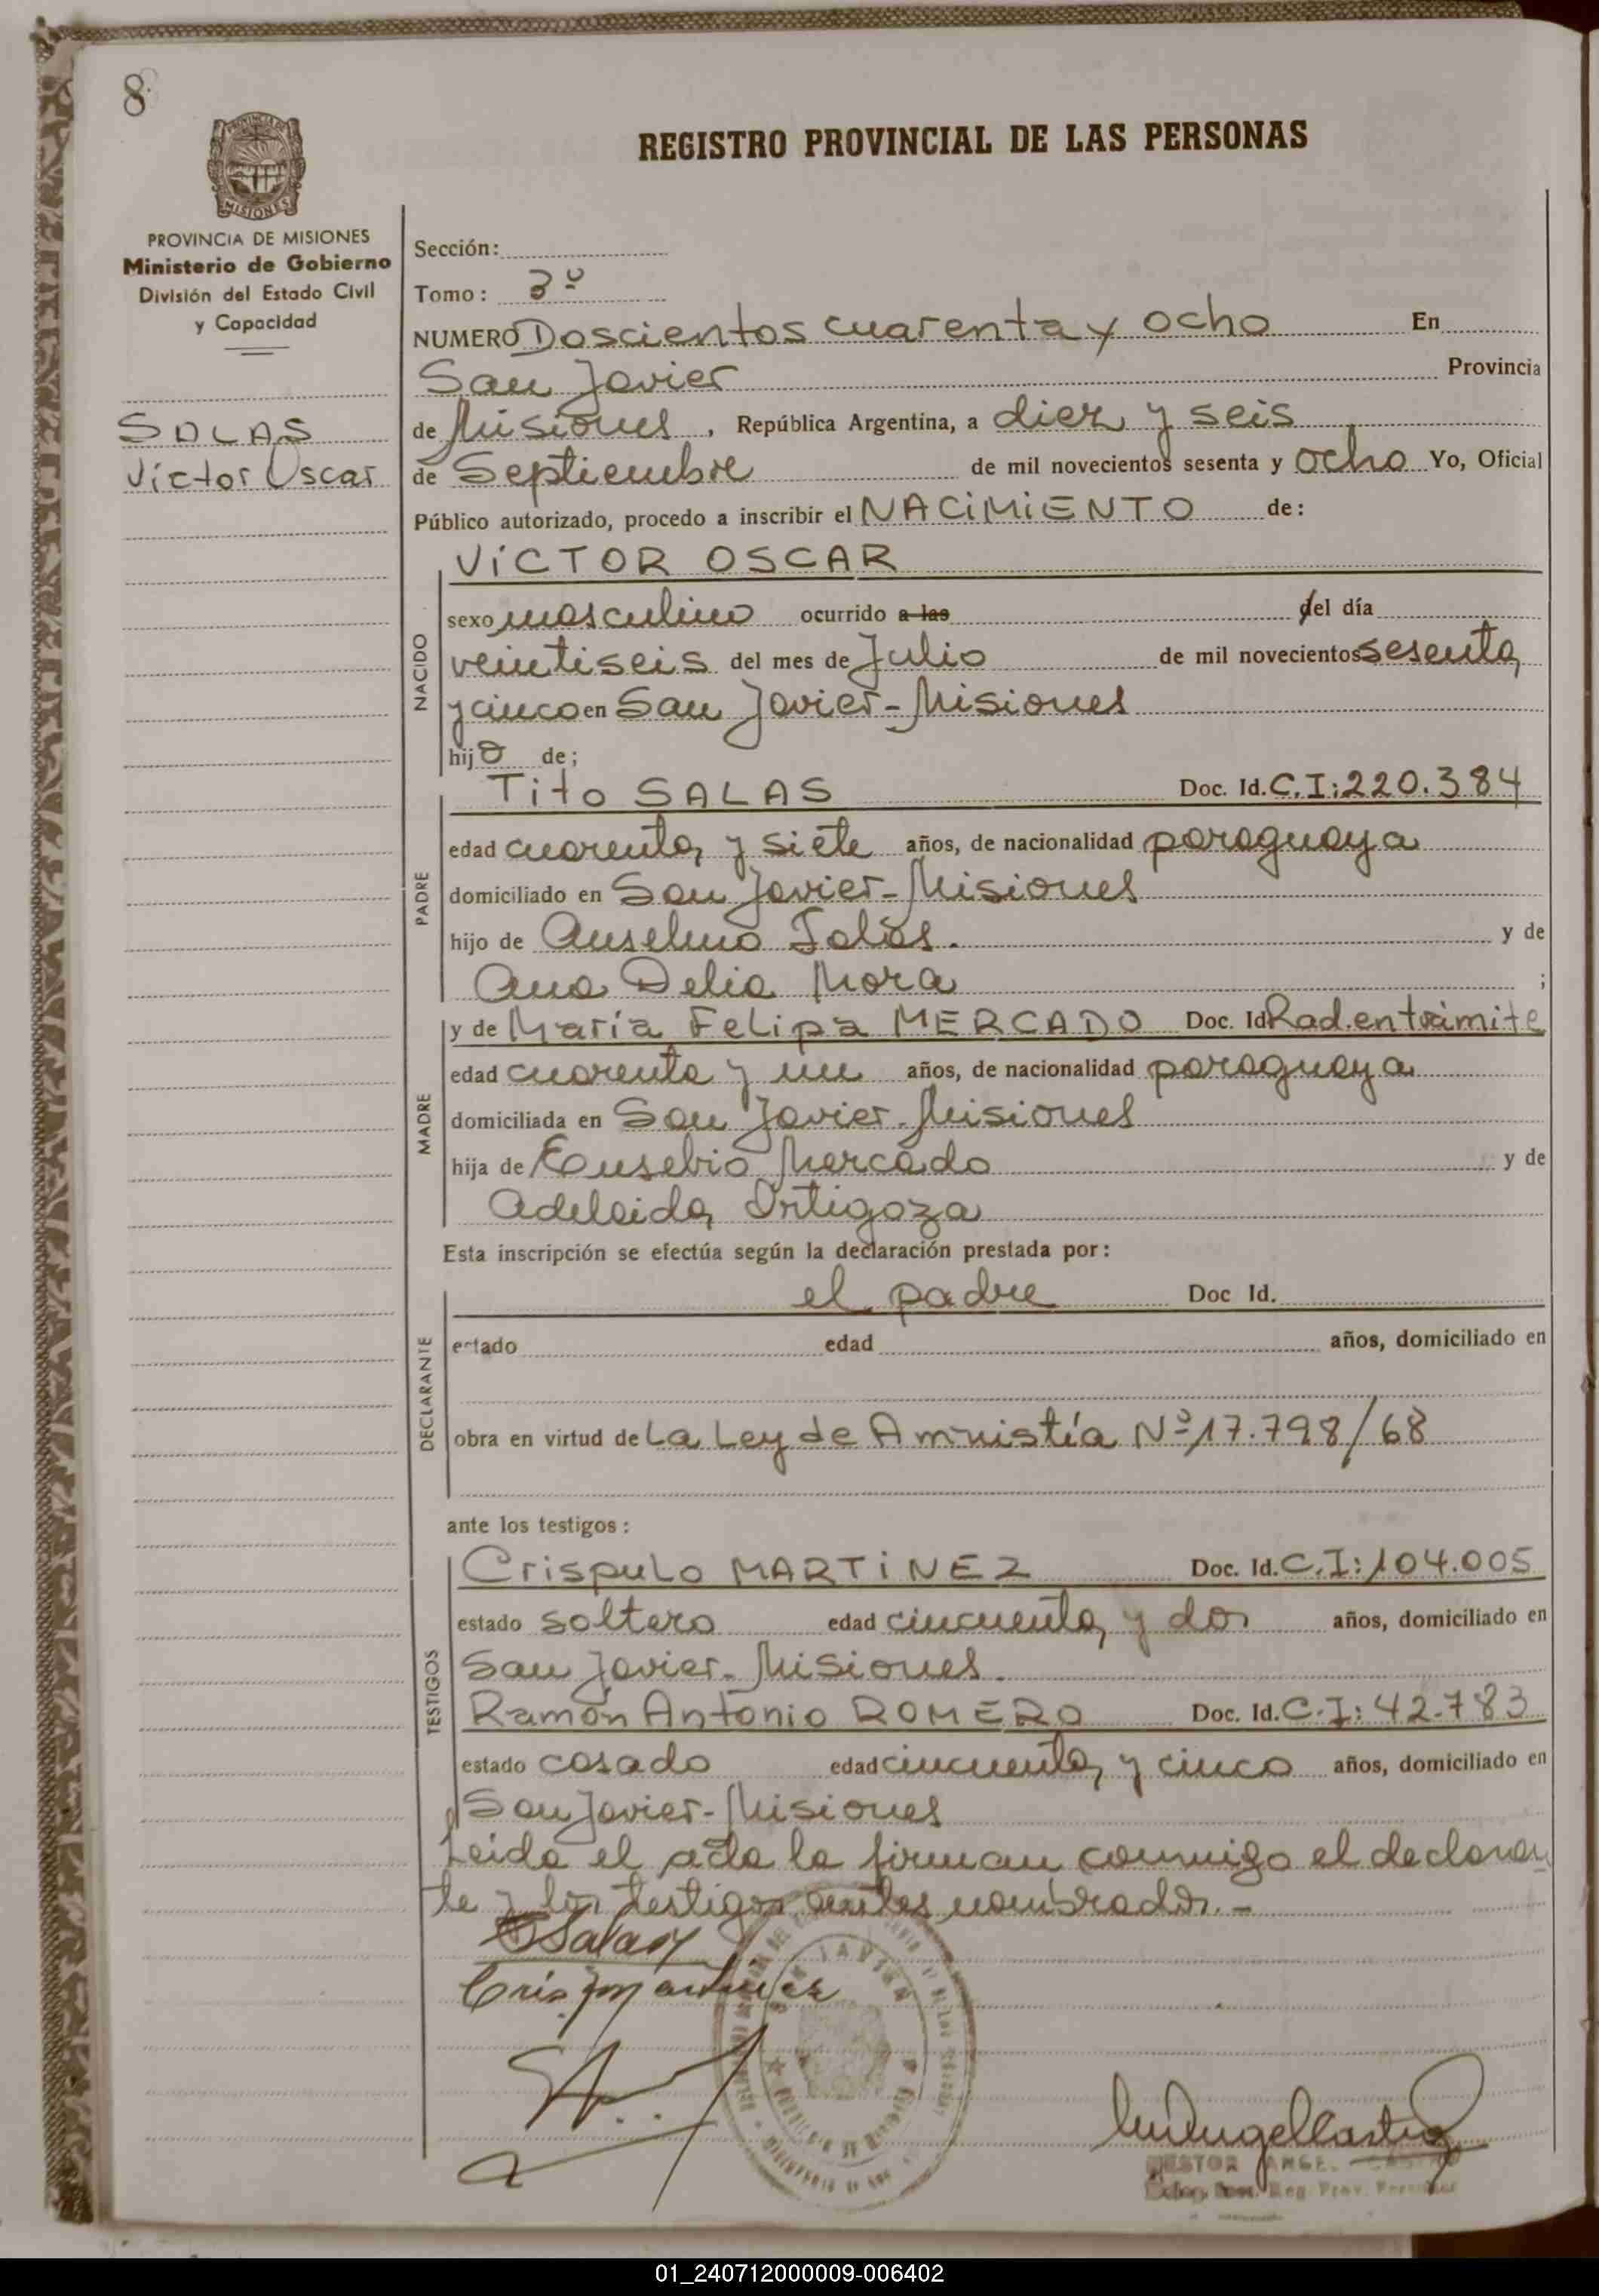 8
REGISTRO PROVINCIAL DE LAS PERSONAS
PROVINCIA DE MISIONES
MISIONES
PROVINCIA DE MISIONES
Ministerio de Gobierno
División del Estado Civil
y Capacidad
SALAS
Víctor Oscar
Sección:
Tomo: 3º
NUMERO Doscientos cuarenta y ocho En
San Javier Provincia
de Misiones, República Argentina, a diez y seis
de Septiembre de mil novecientos sesenta y ocho Yo, Oficial
Público autorizado, procedo a inscribir el NACiMiENTO de:
VíCTOR OSCAR
NACIDO
sexo masculino ocurrido a las del día
veintiseis del mes de Julio de mil novecientos sesenta
y cinco en San Javier - Misiones
hijo de;
PADRE
Tito SALAS Doc. Id. C.I: 220.384
edad cuarenta y siete años, de nacionalidad paraguaya
domiciliado en San Javier - Misiones
hijo de Anselmo Salas. y de
Ana Delia Mora ;
MADRE
y de María Felipa MERCADO Doc. Id Rad. en trámite
edad cuarenta y un años, de nacionalidad paraguaya
domiciliada en San Javier - Misiones
hija de Eusebio Mercado y de
Adelaida Ortigoza
Esta inscripción se efectúa según la declaración prestada por:
DECLARANTE
el padre Doc Id.
estado edad años, domiciliado en
obra en virtud de La Ley de Amnistía Nº 17.798/68
ante los testigos:
TESTIGOS
Crispulo MARTiNEZ Doc. Id. C.I: 104.005
estado soltero edad cincuenta y dos años, domiciliado en
San Javier - Misiones.
Ramón Antonio ROMERO Doc. Id. C.I: 42.783
estado casado edad cincuenta y cinco años, domiciliado en
San Javier - Misiones
Leída el acta la firman conmigo el declaran
te y los testigos antes nombrados. -
Salas
Cris Martinez
NESTOR ANGEL CASTRO
Reg. Prov. Personas
01_240712000009-006402